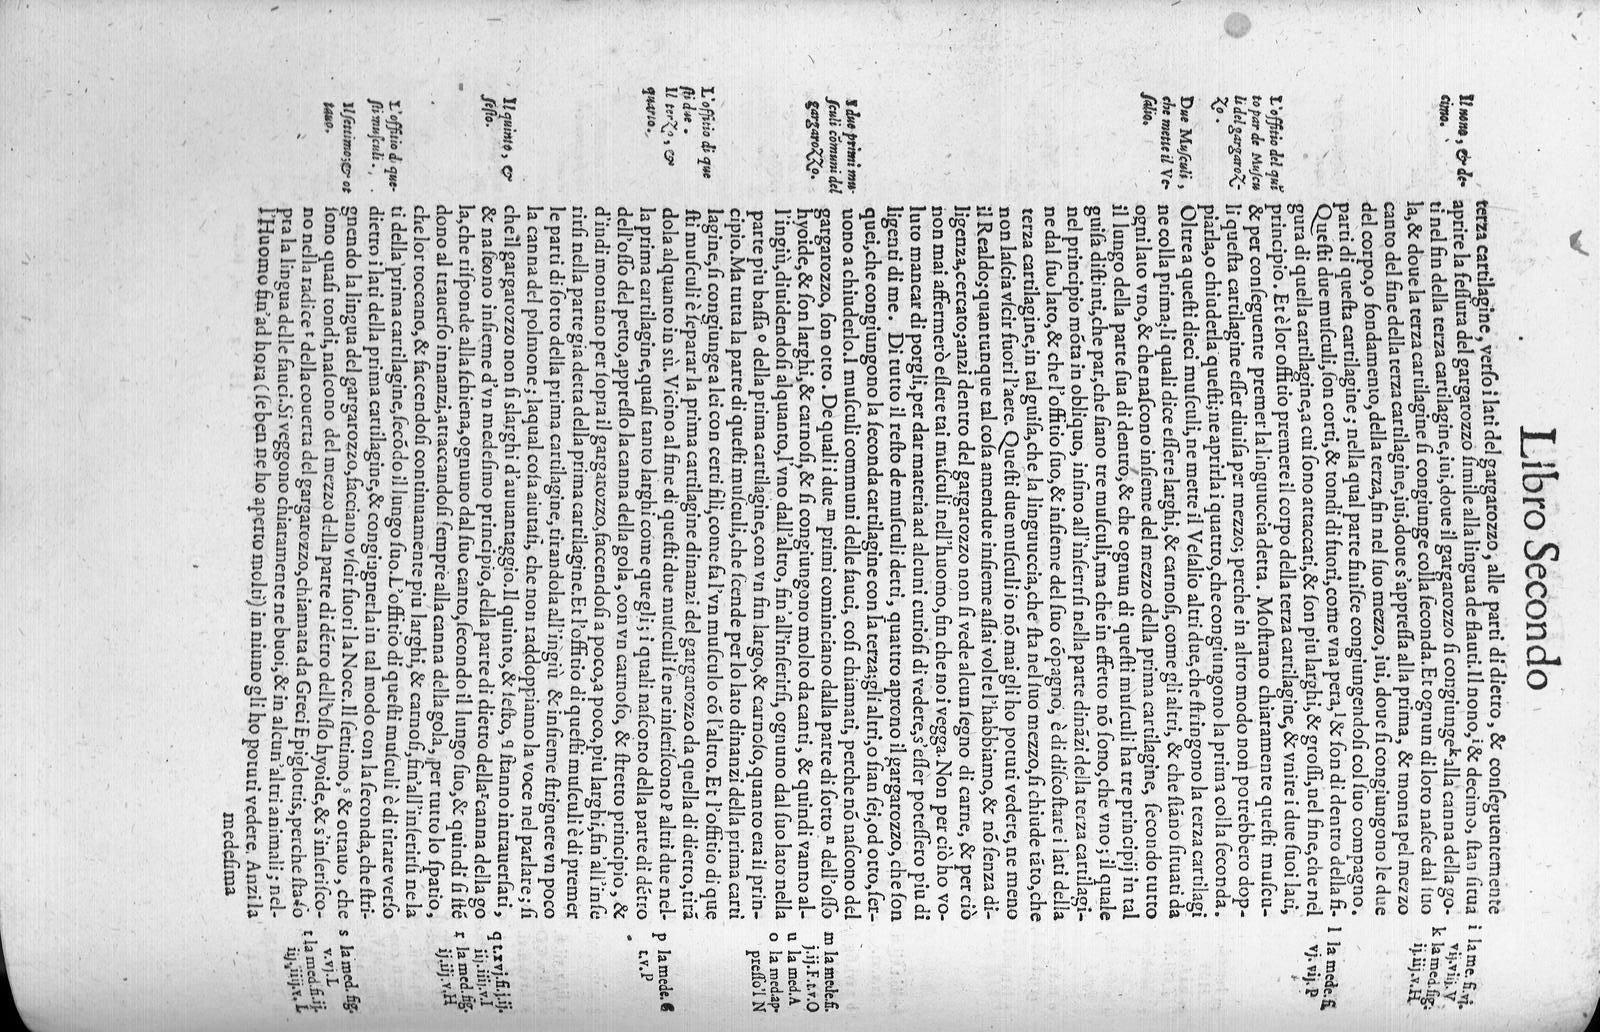 Libro Secondo
terza cartilagine, verso i lati del gargarozzo, alle parti di dietro, & conseguentemente
aprire la fessura del gargarozzo simile alla lingua de flauti. Il nono, i & decimo, stan situa
ti nel fin della terza cartilagine, iui, doue il gargarozzo si congiunge k alla canna della go-
la, & doue la terza cartilagine si congiunge colla seconda. Et ognun di loro nasce dal suo
canto del fine della terza cartilagine, iui, doue s'appressa alla prima, & monna pel mezzo
del corpo, o fondamento, della terza, fin nel suo mezzo, iui, doue si congiungono le due
parti di questa cartilagine; nella qual parte finisce congiungendosi col suo compagno.
Questi due musculi, son corti, & tondi di fuori, come vna pera, l & son di dentro della fi-
gura di quella cartilagine, a cui sono attaccati, & son piu larghi, & grossi, nel fine, che nel
principio. Et è lor offitio premere il corpo della terza cartilagine, & vnire i due suoi lati,
& per conseguente premer la linguuccia detta. Mostrano chiaramente questi muscu-
li questa cartilagine esser diuisa per mezzo; perche in altro modo non potrebbero dop-
piarla, o chiuderla questi; ne aprirla i quattro, che congiungono la terza cartilagi
Oltre a questi dieci musculi, ne mette il Vesalio altri due, che stringono la prima colla seconda.
ne colla prima, li quali dice essere larghi, & carnosi, come gli altri, & che stāno situati da
ogni lato vno, & che nascono insieme del mezzo della prima cartilagine, secondo tutto
il lungo della parte sua di dentro, & che ognun di questi musculi ha tre principij in tal
guisa distinti, che par, che siano tre musculi, ma che in effetto nō sono, che vno; il quale
nel principio mōta in obliquo, insino all'inserirsi nella parte dināzi della terza cartilagi-
ne dal suo lato, & che l'offitio suo, & insieme del suo cōpagno, è di discostare i lati della
terza cartilagine, in tal guisa, che la linguuccia, che sta nel suo mezzo, si chiude tāto, che
non lascia vscir fuori l'aere. Questi due musculi io nō mai gli ho potuti vedere, ne meno
il Realdo; quantunque tal cosa amendue insieme assai volte l'habbiamo, & nō senza di-
ligenza, cercato; anzi dentro del gargarozzo non si vede alcun segno di carne, & per ciò
non mai affermerò essere tai musculi nell'huomo, fin che no i vegga. Non per ciò ho vo-
luto mancar di porgli, per dar materia ad alcuni curiosi di vedere, s'esser potessero piu di
ligenti di me. Di tutto il resto de musculi detti, quattro aprono il gargarozzo, che son
quei, che congiungono la seconda cartilagine con la terza; gli altri, o sian sei, od otto, ser-
uono a chiuderlo. I musculi communi delle fauci, cosi chiamati, perche nō nascono del
gargarozzo, son otto. De quali i due m primi cominciano dalla parte di sotto n dell'osso
hyoide, & son larghi, & carnosi, & si congiungono molto da canti, & quindi vanno al-
l'ingiù, diuidendosi alquanto, l'vno dall'altro, fin'all'inserirsi, ognuno dal suo lato nella
parte piu bassa o della prima cartilagine, con vn fin largo, & carnoso, quanto era il prin-
cipio. Ma tutta la parte di questi musculi, che scende per lo lato dinanzi della prima carti
lagine, si congiunge a lei con certi fili, come fa l'vn musculo cō l'altro. Et l'offitio di que
sti musculi è separar la prima cartilagine dinanzi del gargarozzo da quella di dietro, tirā
dola alquanto in sù. Vicino al fine di questi due musculi se ne inseriscono p altri due nel-
la prima cartilagine, quasi tanto larghi come quegli; i quali nascono della parte di dētro
dell'osso del petto, appresso la canna della gola, con vn carnoso, & stretto principio, &
d'indi montano per sopra il gargarozzo, faccendosi a poco, a poco, piu larghi, fin'all'inse
rirsi nella parte gia detta della prima cartilagine. Et l'offitio di questi musculi è di premer
le parti di sotto della prima cartilagine, tirandola all'ingiù & insieme strignere vn poco
la canna del polmone; laqual cosa aiutati, che non raddoppiamo la voce nel parlare; si
che il gargarozzo non si slarghi d'auuantaggio. Il quinto, & sesto, q stanno intrauersati,
& nascono insieme d'vn medesimo principio, della parte di dietro della r canna della go
la, che risponde alla schiena, ognuno dal suo canto, secondo il lungo suo, & quindi si stē
dono al trauerso innanzi, attaccandosi sempre alla canna della gola, per tutto lo spatio,
che lor toccano, & faccendosi continuamente piu larghi, & carnosi, fin'all'inserirsi ne la
ti della prima cartilagine, secōdo il lungo suo. L'offitio di questi musculi è di tirare verso
dietro i lati della prima cartilagine, & congiugnerla in tal modo con la seconda, che stri-
gnendo la lingua del gargarozzo, facciano vscir fuori la Noce. Il settimo, s & ottauo, che
sono quasi tondi, nascono del mezzo della parte di dētro dell'osso hyoide, & s'inserisco-
no nella radice t della couerta del gargarozzo, chiamata da Greci Epiglottis, perche sta so
pra la lingua delle fauci. Si veggono chiaramente ne buoi, & in alcun'altri animali; nel-
l'Huomo fin'ad hora (se ben ne ho aperto molti) in niuno gli ho potuti vedere. Anzi la
medesima
Il nono, & de-
cimo.
L'offitio del quī
to par de Muscu
li del gargaroz-
zo.
Due Musculi,
che mette il Ve-
salio.
I due primi mu-
sculi cōmuni del
gargarozzo.
L'offitio di que
sti due.
Il terzo, &
quarto.
Il quinto, &
sesto.
L'offitio di que-
sti musculi.
Il settimo, & ot
tauo.
i la me. fi. vi.
vij. viij. V
k la med. fig.
ij. iij. v. H
l la mede. fi.
vj. vij. P
m la mede. fi.
j. ij. F. t. v. O
u la med. A
o la med. ap-
presso'l N
p la mede. &
t. v. P
q t. xvj. fi. j. ij.
iij. iiij. v. I
r la med. fig.
ij. iij. v. H
s la med. fig.
v. vj. L
t la med. fi. ij.
iij. iiij. v. L